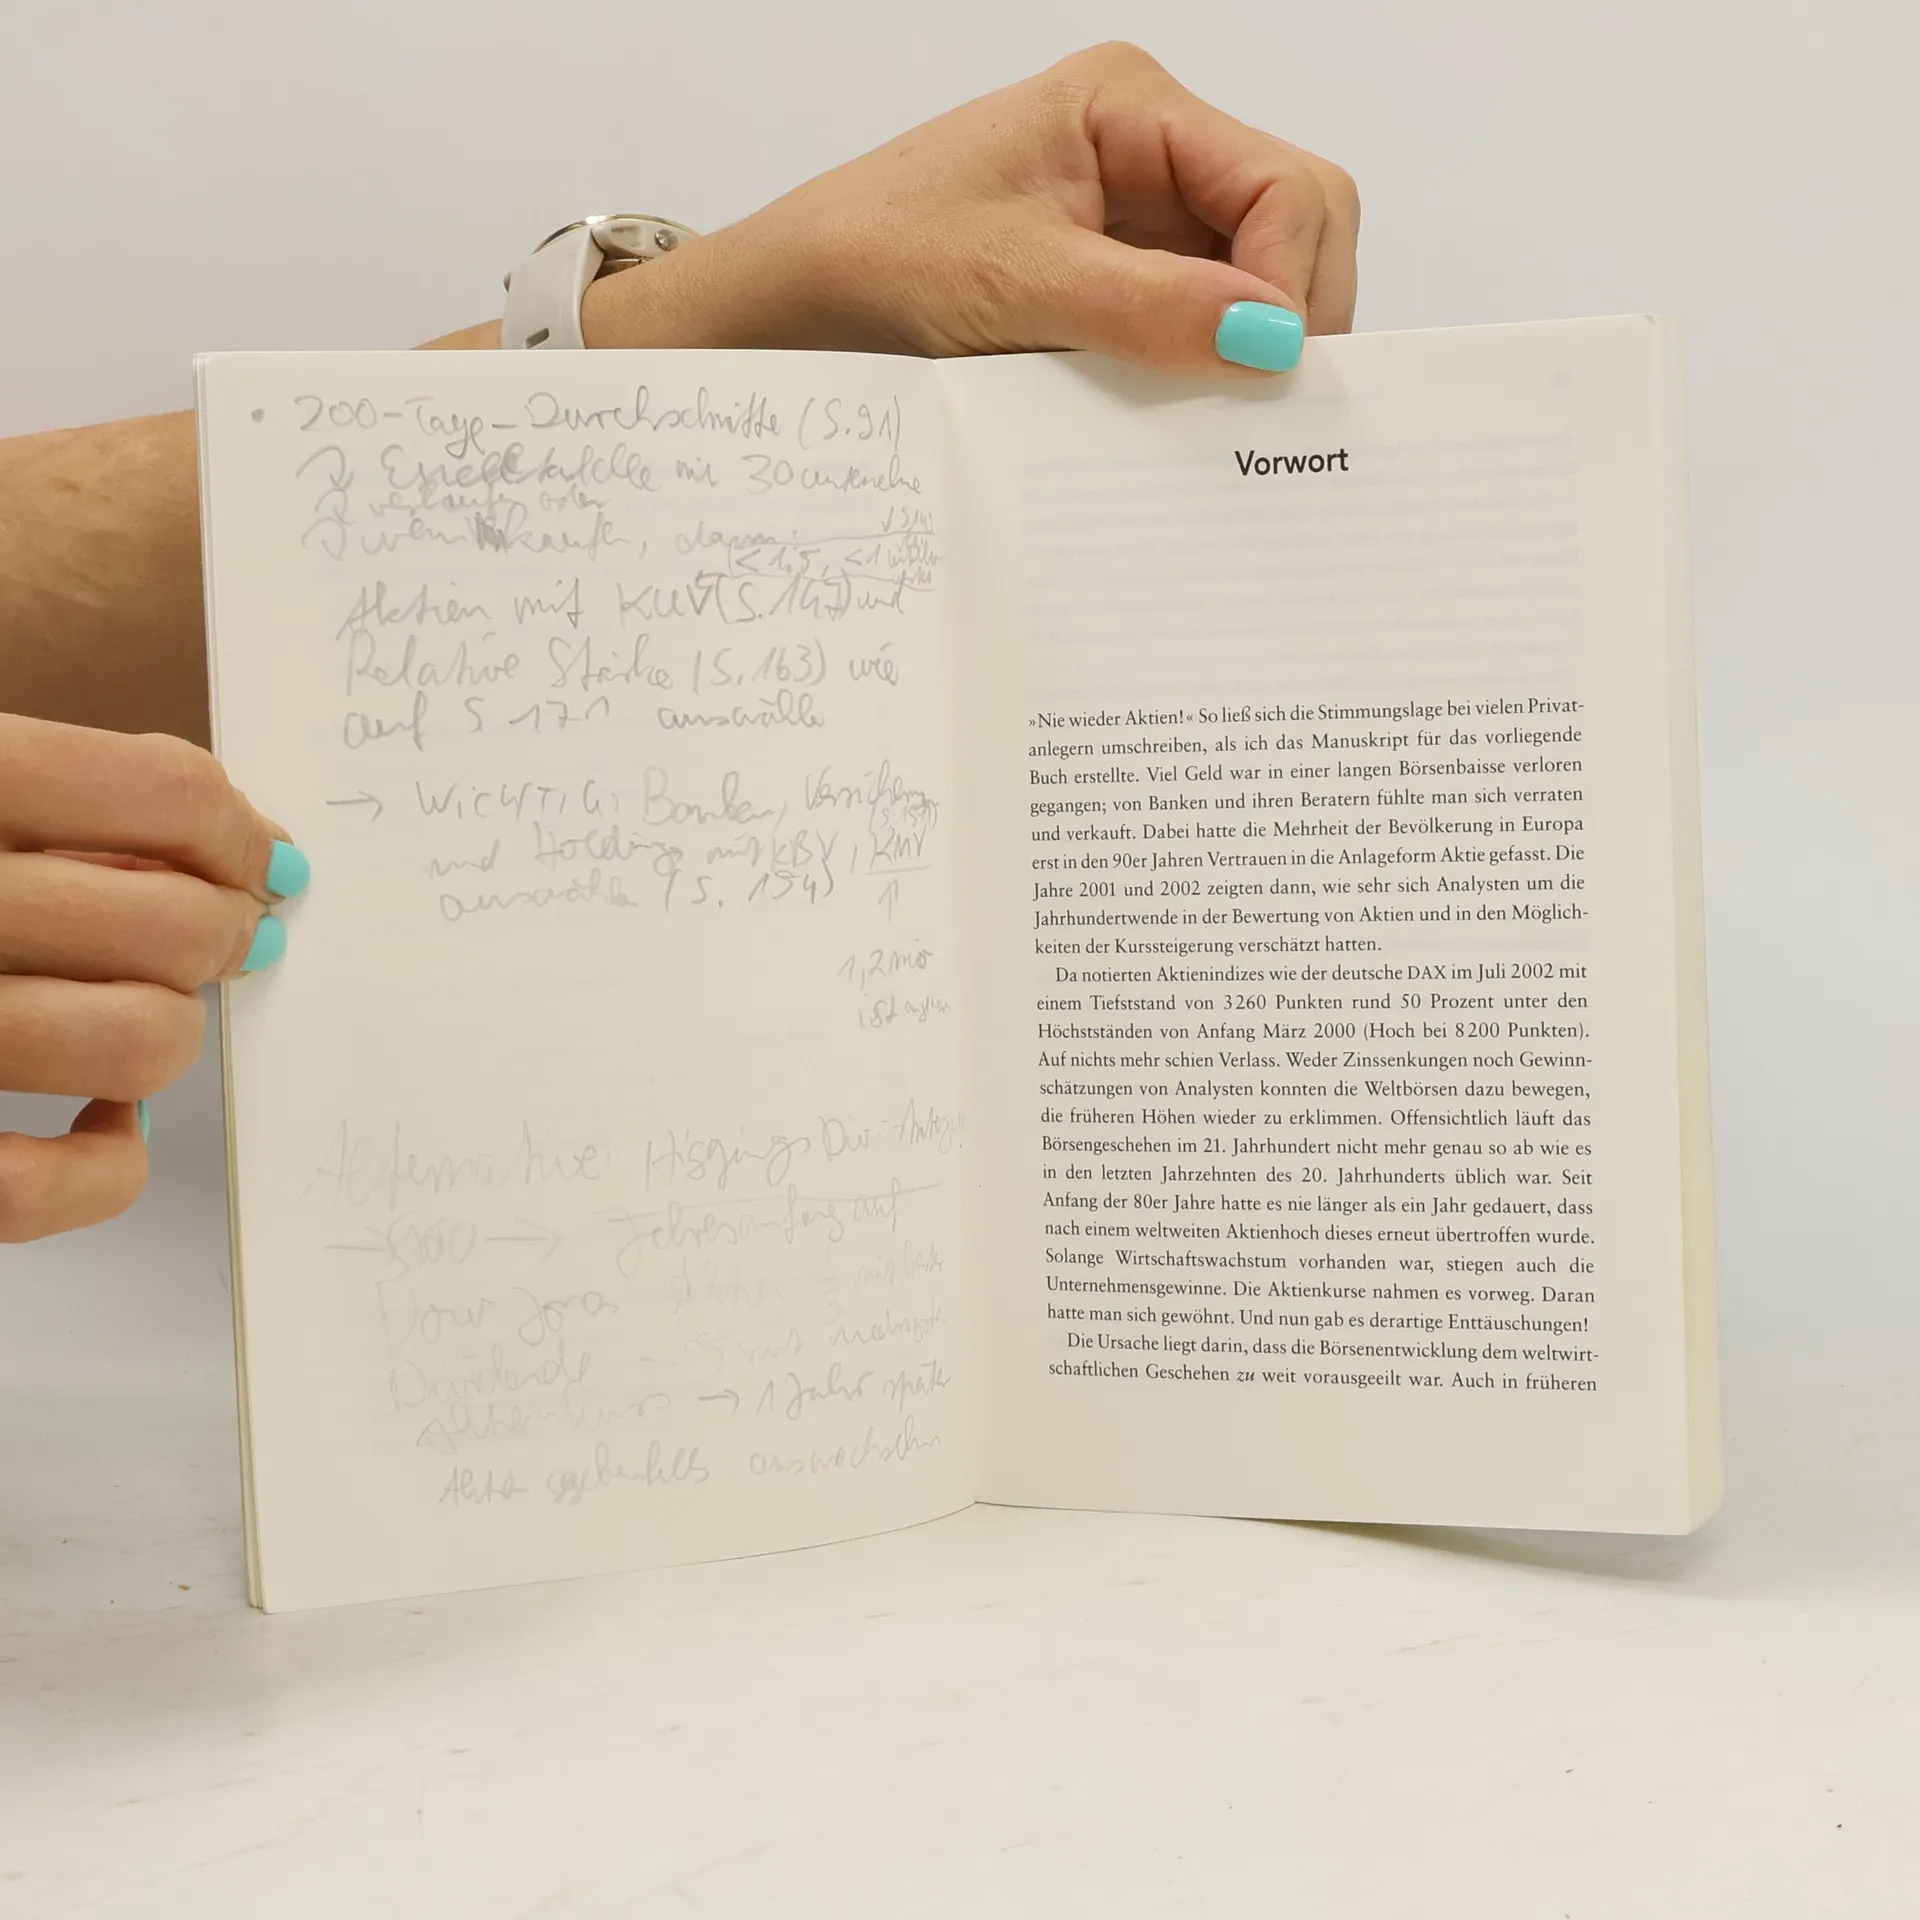 • 200-Tage-Durchschnitte (S.91)
mit 30
verkaufen oder
wenn kaufen, dann:
<1,5, <1
Aktien mit KUV (S.147) und
Relative Stärke (S.163) wie
auf S 171 auswähle
→ WICHTIG: Banken,
und Holdings mit KBV, KMV
auswähle (S. 154)
↑
1,2
ist
Alternative
→ → Jahresanfang auf
Dow Jones
Dividende
→ 1 Jahr später
auswechseln
Vorwort
»Nie wieder Aktien!« So ließ sich die Stimmungslage bei vielen Privat-
anlegern umschreiben, als ich das Manuskript für das vorliegende
Buch erstellte. Viel Geld war in einer langen Börsenbaisse verloren
gegangen; von Banken und ihren Beratern fühlte man sich verraten
und verkauft. Dabei hatte die Mehrheit der Bevölkerung in Europa
erst in den 90er Jahren Vertrauen in die Anlageform Aktie gefasst. Die
Jahre 2001 und 2002 zeigten dann, wie sehr sich Analysten um die
Jahrhundertwende in der Bewertung von Aktien und in den Möglich-
keiten der Kurssteigerung verschätzt hatten.
Da notierten Aktienindizes wie der deutsche DAX im Juli 2002 mit
einem Tiefststand von 3260 Punkten rund 50 Prozent unter den
Höchstständen von Anfang März 2000 (Hoch bei 8200 Punkten).
Auf nichts mehr schien Verlass. Weder Zinssenkungen noch Gewinn-
schätzungen von Analysten konnten die Weltbörsen dazu bewegen,
die früheren Höhen wieder zu erklimmen. Offensichtlich läuft das
Börsengeschehen im 21. Jahrhundert nicht mehr genau so ab wie es
in den letzten Jahrzehnten des 20. Jahrhunderts üblich war. Seit
Anfang der 80er Jahre hatte es nie länger als ein Jahr gedauert, dass
nach einem weltweiten Aktienhoch dieses erneut übertroffen wurde.
Solange Wirtschaftswachstum vorhanden war, stiegen auch die
Unternehmensgewinne. Die Aktienkurse nahmen es vorweg. Daran
hatte man sich gewöhnt. Und nun gab es derartige Enttäuschungen!
Die Ursache liegt darin, dass die Börsenentwicklung dem weltwirt-
schaftlichen Geschehen zu weit vorausgeeilt war. Auch in früheren